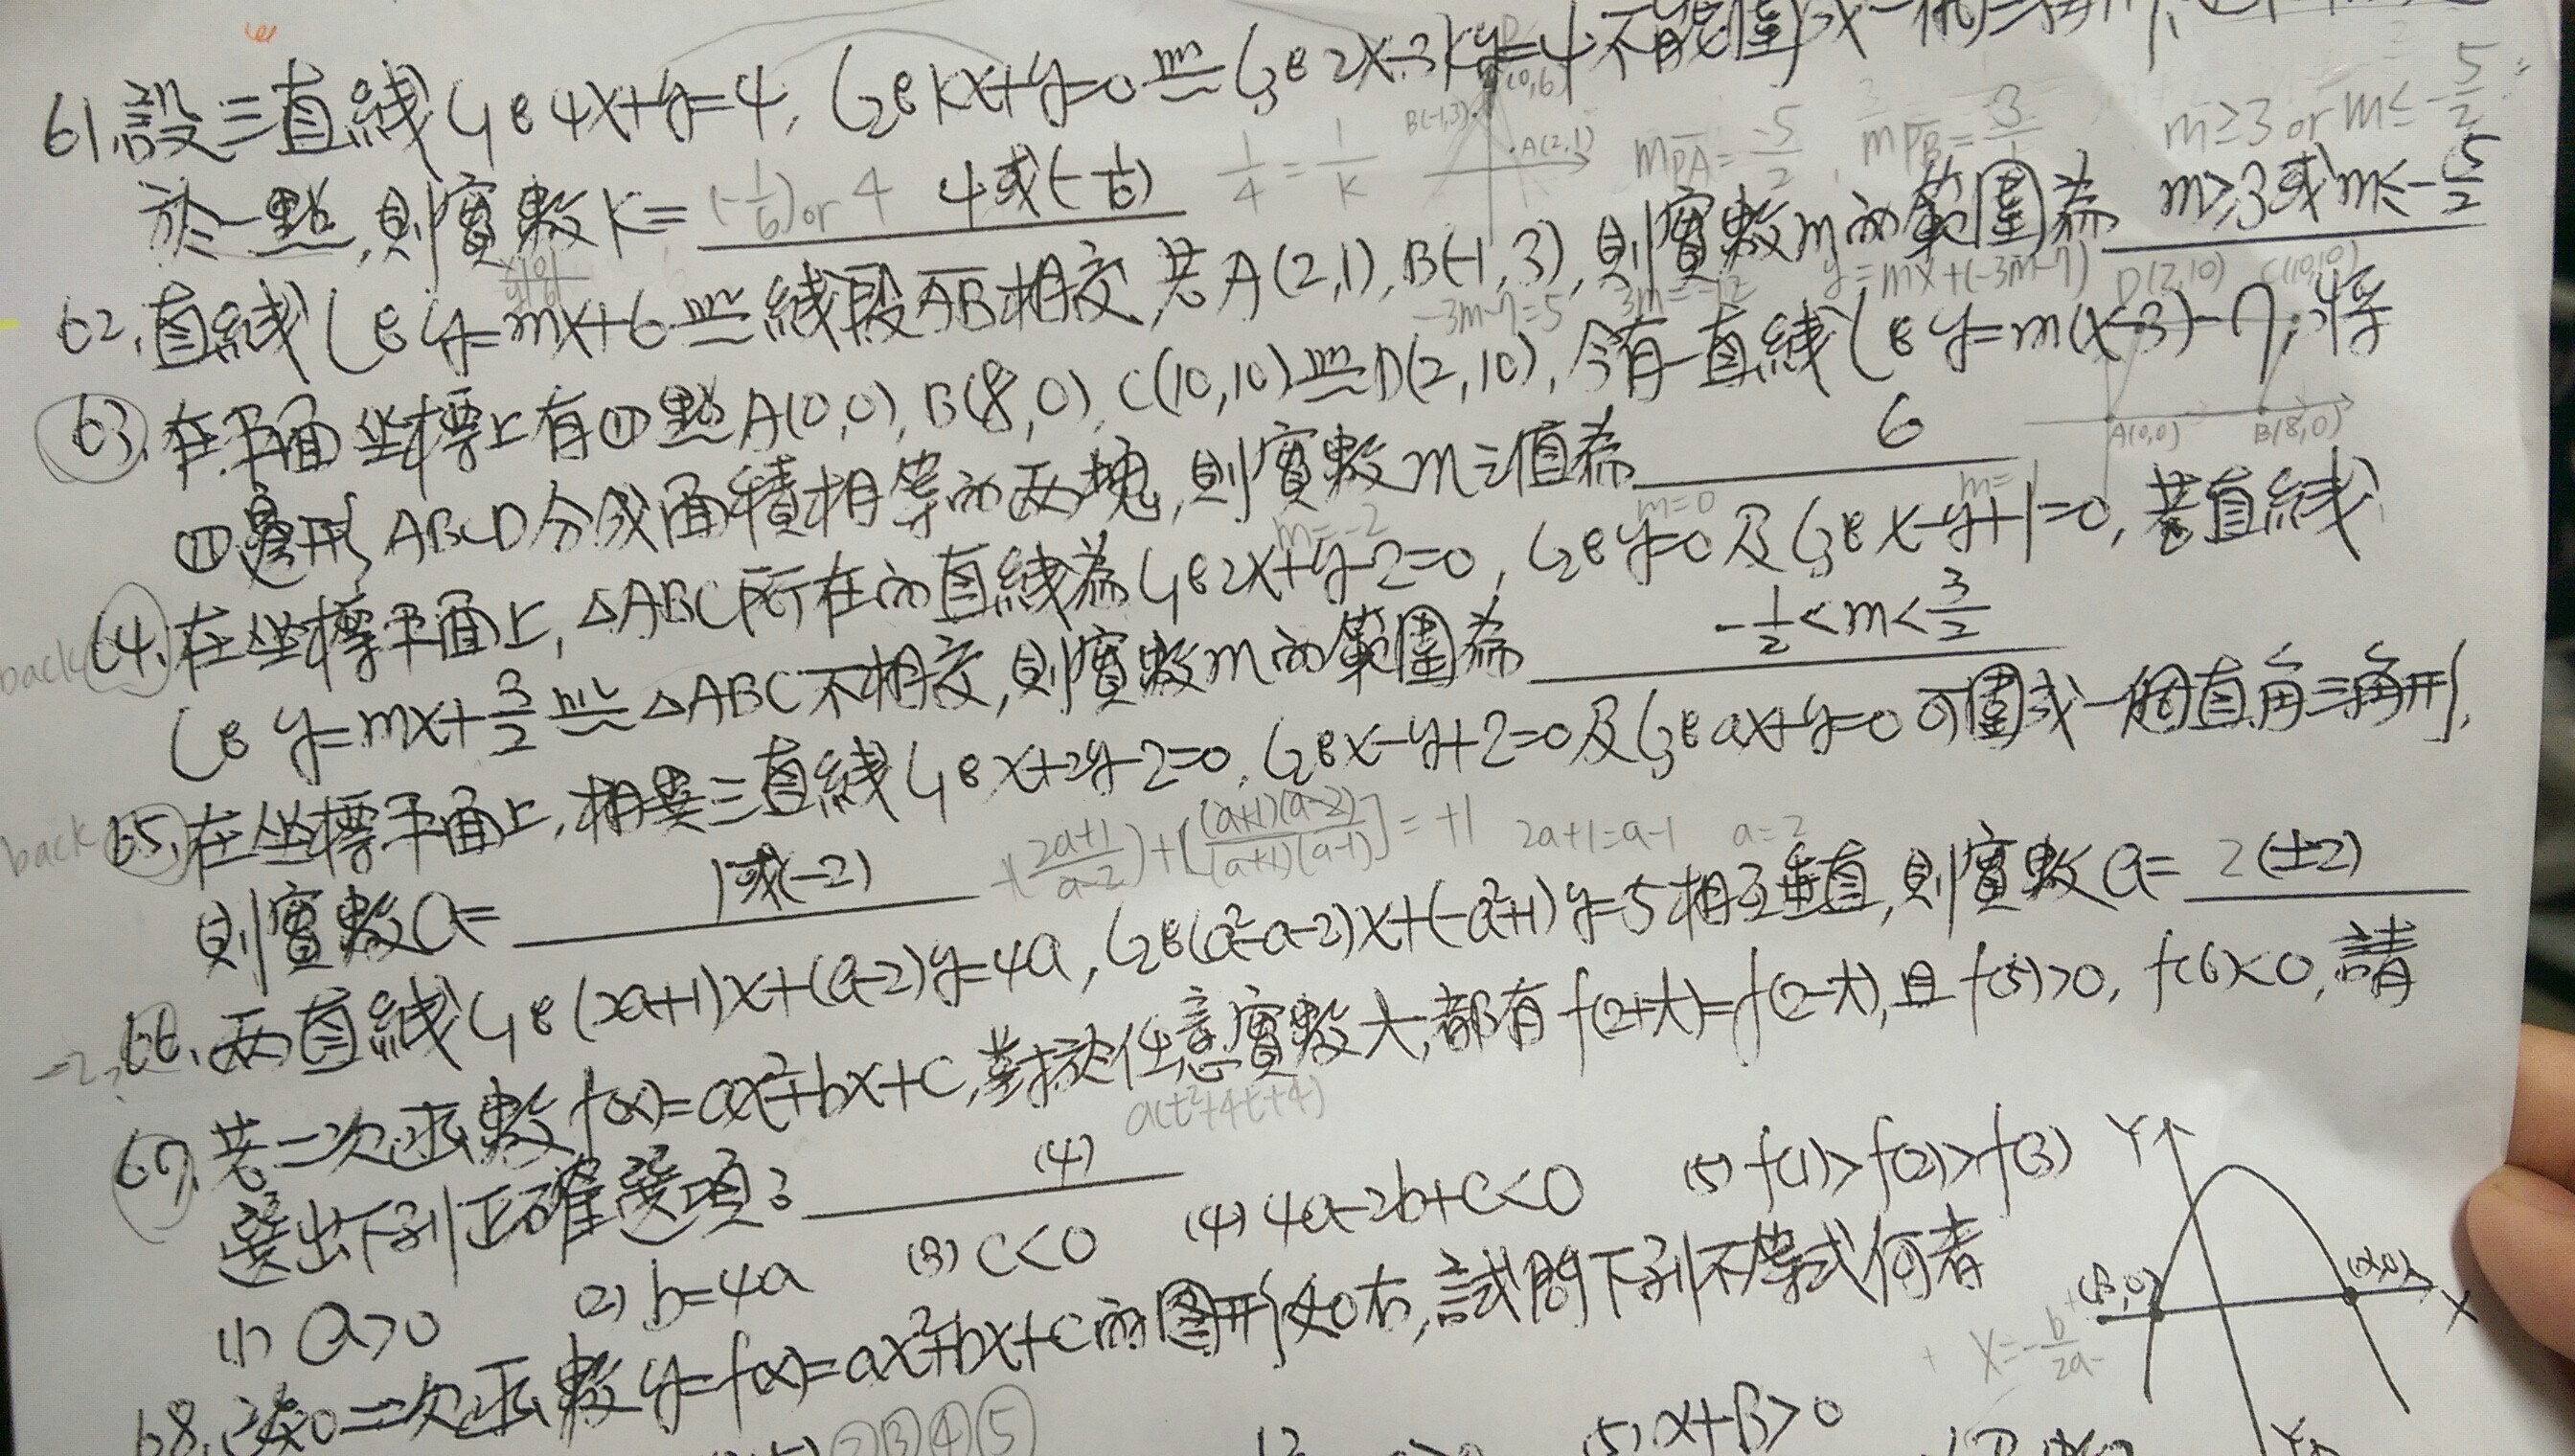 61. 設三直線 L₁：4x+y=4, L₂：kx+y=0 與 L₃：2x-3ky=4 不能圍成一個三角形
於一點, 則實數 k= (-1/6) or 4 4或(-1/6) 1/4 = 1/k B(-1,3) (0,6) A(2,1) mPA = -5/2, mPB = 3/1 m≥3 or m≤-5/2
62. 直線 L：y=mx+6 與線段AB相交, 若 A(2,1), B(-1,3), 則實數m的範圍為 m≥3或m≤-5/2
-3m-7=5 3m=-12 y=mx+(-3m-7) D(2,10) C(10,10)
63. 在平面坐標上有四點 A(0,0), B(8,0), C(10,10)與D(2,10), 今有一直線 L：y=m(x-3)-7, 將
四邊形ABCD分成面積相等的兩塊, 則實數m之值為 6 A(0,0) B(8,0)
m=-2 m=0 m=1
back 64. 在坐標平面上, △ABC所在的直線為 L₁：2x+y-2=0, L₂：y=0 及 L₃：x-y+1=0, 若直線
L：y=mx+3/2 與△ABC不相交, 則實數m的範圍為 -1/2<m<3/2
back 65. 在坐標平面上, 相異三直線 L₁：x+2y-2=0, L₂：x-y+2=0 及 L₃：ax+y=0 可圍成一個直角三角形,
則實數a= 1或(-2) (2a+1/a-2)+[(a+1)(a-2)/(a+1)(a-1)]=+1 2a+1=a-1 a=2
66. 兩直線 L₁：(2a+1)x+(a-2)y=4a, L₂：(a²-a-2)x+(-a²+1)y=5 相互垂直, 則實數a= 2(±2)
67. 若二次函數 f(x)=ax²+bx+c, 對於任意實數t, 都有 f(2+t)=f(2-t), 且 f(5)>0, f(6)<0, 請
a(t²+4t+4)
選出下列正確選項： (4)
(1) a>0 (2) b=4a (3) c<0 (4) 4a-2b+c<0 (5) f(1)>f(2)>f(3)
68. 設二次函數 y=f(x)=ax²+bx+c的圖形如右, 試問下列不等式何者
Y (β,0) (α,0) X x=-b/2a
②③④⑤ (5) α+β>0